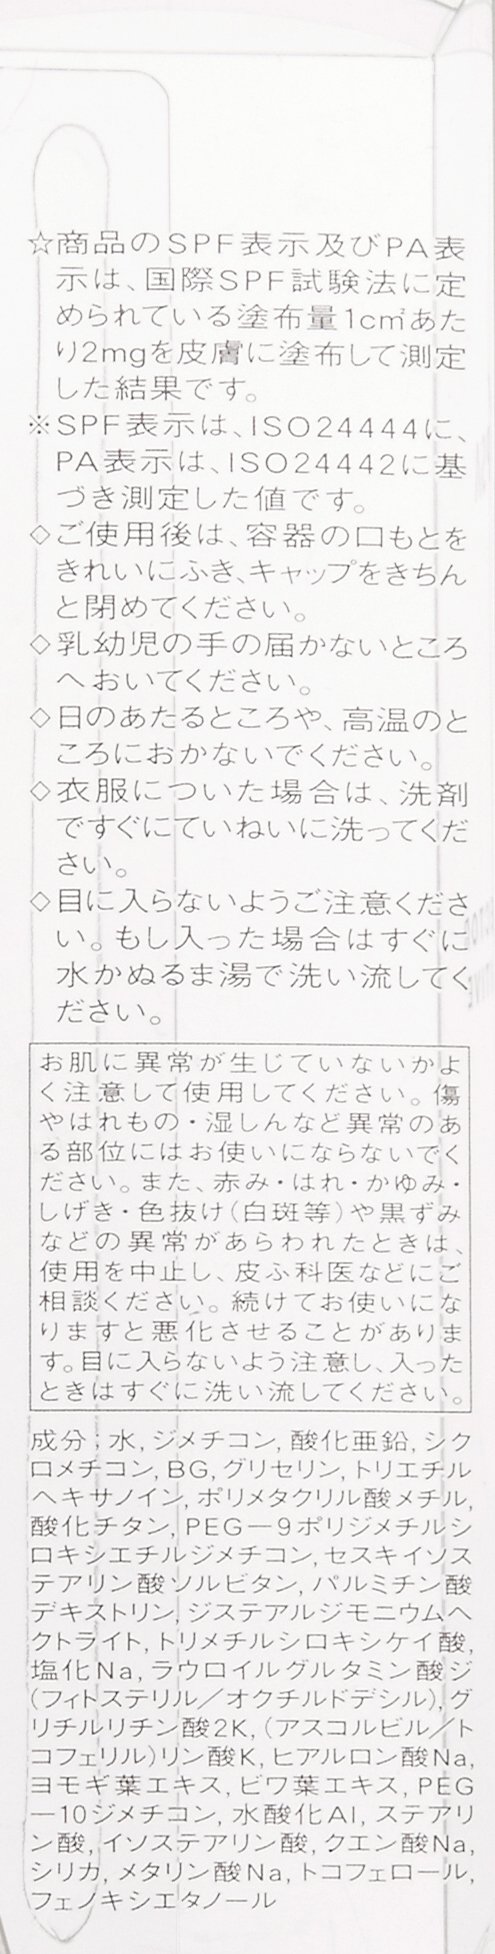 ☆商品のSPF表示及びPA表
示は、国際SPF試験法に定
められている塗布量1c㎡あた
り2mgを皮膚に塗布して測定
した結果です。
※SPF表示は、ISO24444に、
PA表示は、ISO24442に基
づき測定した値です。
◇ご使用後は、容器の口もとを
きれいにふき、キャップをきちん
と閉めてください。
◇乳幼児の手の届かないところ
へおいてください。
◇日のあたるところや、高温のと
ころにおかないでください。
◇衣服についた場合は、洗剤
ですぐにていねいに洗ってくだ
さい。
◇目に入らないようご注意くださ
い。もし入った場合はすぐに
水かぬるま湯で洗い流してく
ださい。
お肌に異常が生じていないかよ
く注意して使用してください。傷
やはれもの・湿しんなど異常のあ
る部位にはお使いにならないでく
ださい。また、赤み・はれ・かゆみ・
しげき・色抜け(白斑等)や黒ずみ
などの異常があらわれたときは、
使用を中止し、皮ふ科医などにご
相談ください。続けてお使いにな
りますと悪化させることがありま
す。目に入らないよう注意し、入った
ときはすぐに洗い流してください。
成分:水,ジメチコン,酸化亜鉛,シク
ロメチコン,BG,グリセリン,トリエチル
ヘキサノイン,ポリメタクリル酸メチル,
酸化チタン,PEG-9ポリジメチルシ
ロキシエチルジメチコン,セスキイソス
テアリン酸ソルビタン,パルミチン酸
デキストリン,ジステアルジモニウムヘ
クトライト,トリメチルシロキシケイ酸,
塩化Na,ラウロイルグルタミン酸ジ
(フィトステリル/オクチルドデシル),グ
リチルリチン酸2K,(アスコルビル/ト
コフェリル)リン酸K,ヒアルロン酸Na,
ヨモギ葉エキス,ビワ葉エキス,PEG
-10ジメチコン,水酸化Al,ステアリ
ン酸,イソステアリン酸,クエン酸Na,
シリカ,メタリン酸Na,トコフェロール,
フェノキシエタノール